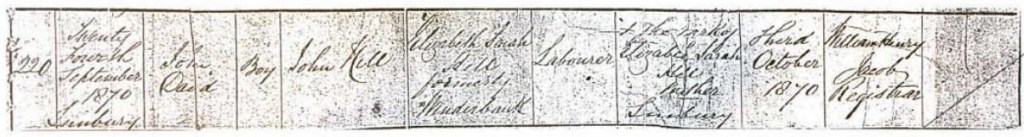 220
Twenty
Fourth
September
1870
Sunbury
John
David
Boy
John Hill
Elizabeth Sarah
Hill
formerly
Winderbank
Labourer
X The mark of
Elizabeth Sarah
Hill
Mother
Sunbury
Third
October
1870
William Henry
Jacob
Registrar